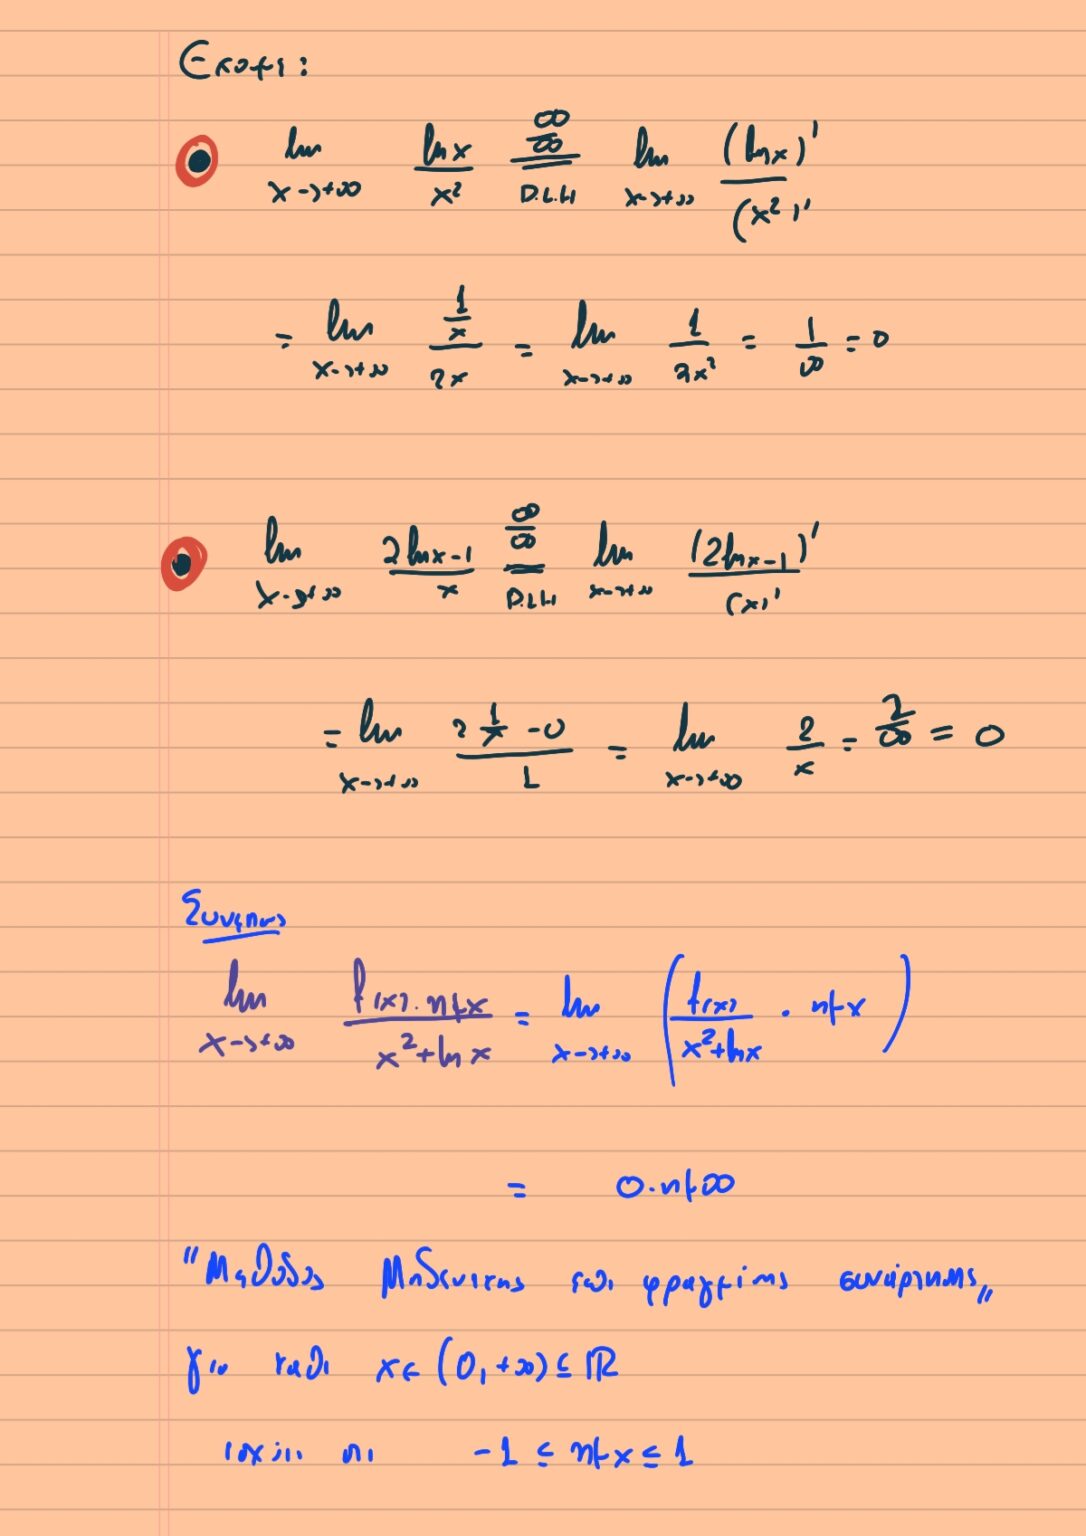 Εχουμε:
lim x→+∞ lnx/x² =(∞/∞)(D.L.H) lim x→+∞ (lnx)'/(x²)'
= lim x→+∞ (1/x)/2x = lim x→+∞ 1/2x² = 1/∞ = 0
lim x→+∞ (2lnx-1)/x =(∞/∞)(D.L.H) lim x→+∞ (2lnx-1)'/(x)'
= lim x→+∞ (2 1/x - 0)/1 = lim x→+∞ 2/x = 2/∞ = 0
Συνεπως
lim x→+∞ f(x).ημx/(x²+lnx) = lim x→+∞ (f(x)/(x²+lnx) . ημx)
= 0.ημ∞
"Μεθοδος Μηδενικης επι φραγμένης συνάρτησης"
για καθε x∈(0,+∞)⊆ℝ
ισχυει οτι -1 ≤ ημx ≤ 1